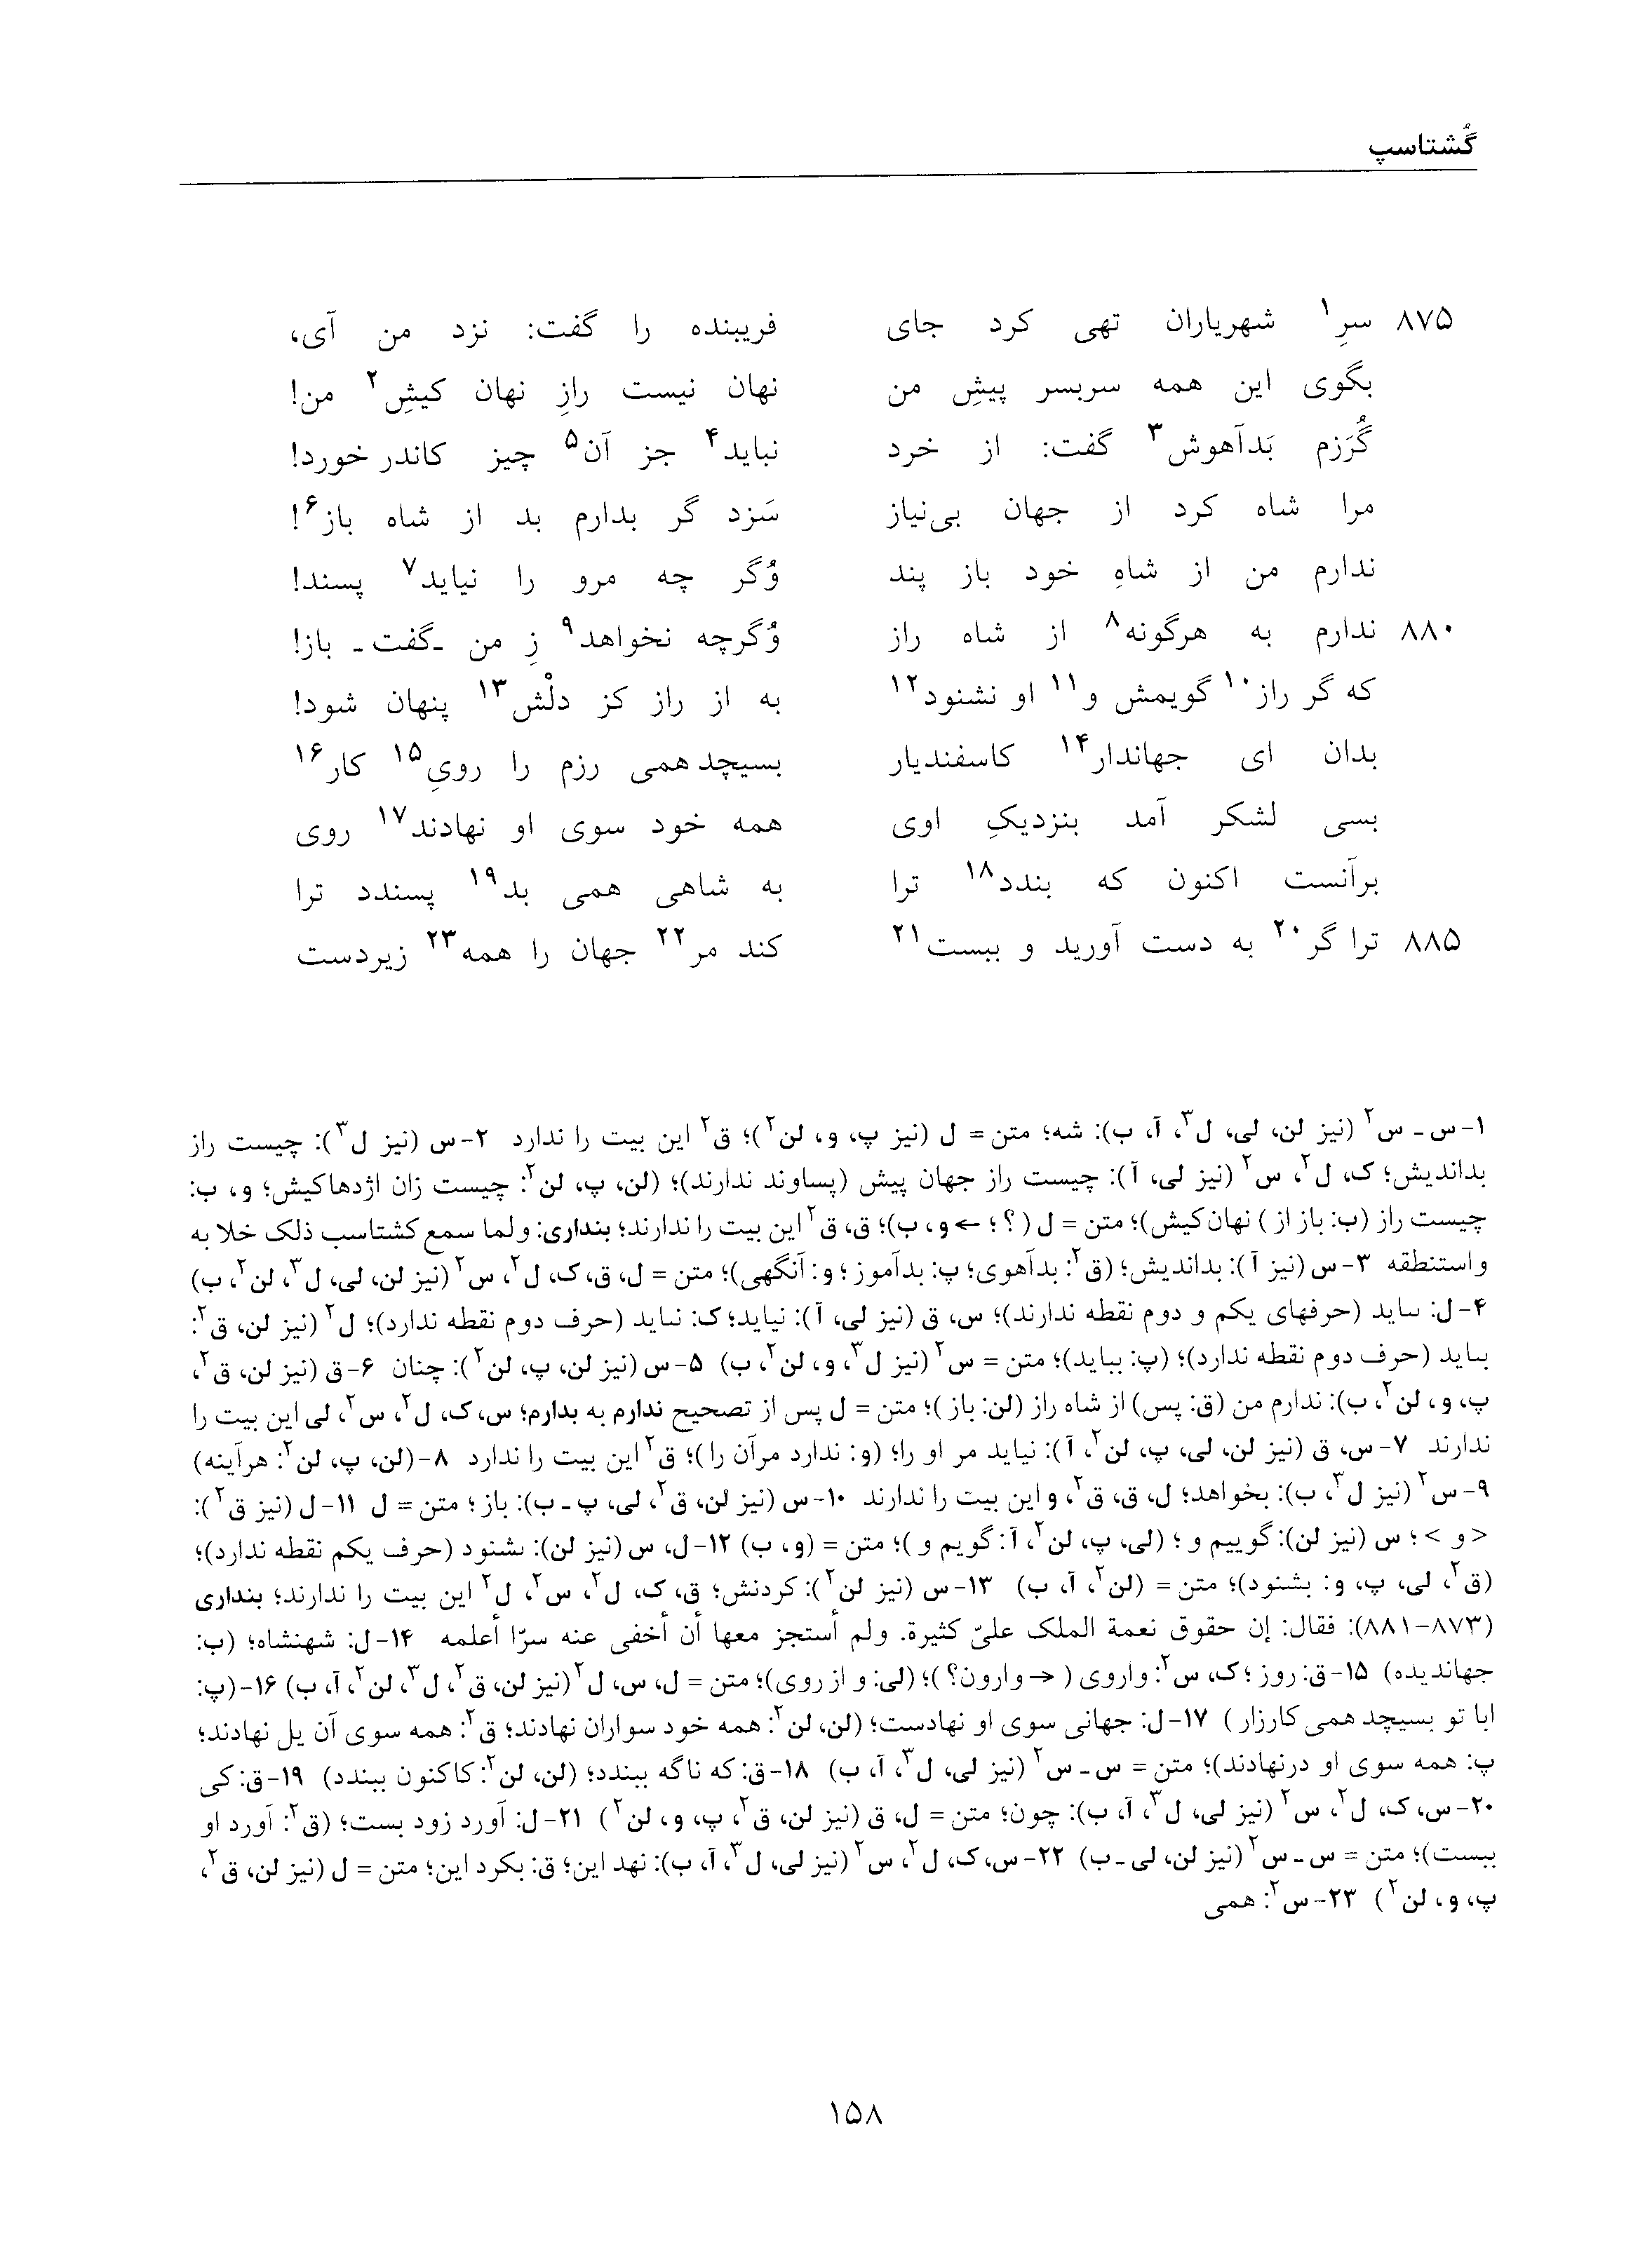 گُشتاسپ
۸۷۵ سرِ۱ شهریاران تهی کرد جای فریبنده را گفت: نزد من آی،
بگوی این همه سربسر پیشِ من نهان نیست رازِ نهان کیشِ۲ من!
گُرَزم بَدآهوش۳ گفت: از خرد نباید۴ جز آن۵ چیز کاندر خورد!
مرا شاه کرد از جهان بی‌نیاز سَزد گر بدارم بد از شاه باز۶!
ندارم من از شاهِ خود باز پند وُگر چه مرو را نیاید۷ پسند!
۸۸۰ ندارم به هرگونه۸ از شاه راز وُگرچه نخواهد۹ زِ من ـ گفت ـ باز!
که گر راز۱۰ گویمش و۱۱ او نشنود۱۲ به از راز کز دلْش۱۳ پنهان شود!
بدان ای جهاندار۱۴ کاسفندیار بسیچد همی رزم را رویِ۱۵ کار۱۶
بسی لشکر آمد بنزدیکِ اوی همه خود سوی او نهادند۱۷ روی
برآنست اکنون که بندد۱۸ ترا به شاهی همی بد۱۹ پسندد ترا
۸۸۵ ترا گر۲۰ به دست آورید و ببست۲۱ کند مر۲۲ جهان را همه۲۳ زیردست
۱- س ـ س۲ (نیز لن، لی، ل۳، آ، ب): شه؛ متن = ل (نیز پ، و، لن۲)؛ ق۲ این بیت را ندارد ۲- س (نیز ل۳): چیست راز
بداندیش؛ ک، ل۲، س۲ (نیز لی، آ): چیست راز جهان پیش (پساوند ندارند)؛ (لن، پ، لن۲: چیست زان اژدهاکیش؛ و، ب:
چیست راز (ب: باز از) نهان‌کیش)؛ متن = ل (؟؛ ← و، ب)؛ ق، ق۲ این بیت را ندارند؛ بنداری: ولما سمع کشتاسب ذلک خلا به
واستنطقه ۳- س (نیز آ): بداندیش؛ (ق۲: بدآهوی؛ پ: بدآموز؛ و: آنگهی)؛ متن = ل، ق، ک، ل۲، س۲ (نیز لن، لی، ل۳، لن۲، ب)
۴- ل: ٮٮاید (حرفهای یکم و دوم نقطه ندارند)؛ س، ق (نیز لی، آ): نیاید؛ ک: نٮاید (حرف دوم نقطه ندارد)؛ ل۲ (نیز لن، ق۲:
بٮاید (حرف دوم نقطه ندارد)؛ (پ: بباید)؛ متن = س۲ (نیز ل۳، و، لن۲، ب) ۵- س (نیز لن، پ، لن۲): چنان ۶- ق (نیز لن، ق۲،
پ، و، لن۲، ب): ندارم من (ق: پس) از شاه راز (لن: باز)؛ متن = ل پس از تصحیح ندارم به بدارم؛ س، ک، ل۲، س۲، لی این بیت را
ندارند ۷- س، ق (نیز لن، لی، پ، لن۲، آ): نیاید مر او را؛ (و: ندارد مرآن را)؛ ق۲ این بیت را ندارد ۸- (لن، پ، لن۲: هرآینه)
۹- س۲ (نیز ل۳، ب): بخواهد؛ ل، ق، ق۲، و این بیت را ندارند ۱۰- س (نیز لن، ق۲، لی، پ ـ ب): باز؛ متن = ل ۱۱- ل (نیز ق۲):
<و>؛ س (نیز لن): گوییم و؛ (لی، پ، لن۲، آ: گویم و)؛ متن = (و، ب) ۱۲- ل، س (نیز لن): ٮشنود (حرف یکم نقطه ندارد)؛
(ق۲، لی، پ، و: بشنود)؛ متن = (لن۲، آ، ب) ۱۳- س (نیز لن۲): کردنش؛ ق، ک، ل۲، س۲، ل۲ این بیت را ندارند؛ بنداری
(۸۷۳-۸۸۱): فقال: إن حقوق نعمة الملک علیّ کثیرة. ولم أستجز معها أن أخفی عنه سرّا أعلمه ۱۴- ل: شهنشاه؛ (ب:
جهاندیده) ۱۵- ق: روز؛ ک، س۲: واروی (→ وارون؟)؛ (لی: و از روی)؛ متن = ل، س، ل۲ (نیز لن، ق۲، ل۳، لن۲، آ، ب) ۱۶- (پ:
ابا تو بسیچد همی کارزار) ۱۷- ل: جهانی سوی او نهادست؛ (لن، لن۲: همه خود سواران نهادند؛ ق۲: همه سوی آن یل نهادند؛
پ: همه سوی او درنهادند)؛ متن = س ـ س۲ (نیز لی، ل۳، آ، ب) ۱۸- ق: که ناگه ببندد؛ (لن، لن۲: کاکنون ببندد) ۱۹- ق: کی
۲۰- س، ک، ل۲، س۲ (نیز لی، ل۳، آ، ب): چون؛ متن = ل، ق (نیز لن، ق۲، پ، و، لن۲) ۲۱- ل: آورد زود بست؛ (ق۲: آورد او
ببست)؛ متن = س ـ س۲ (نیز لن، لی ـ ب) ۲۲- س، ک، ل۲، س۲ (نیز لی، ل۳، آ، ب): نهد این؛ ق: بکرد این؛ متن = ل (نیز لن، ق۲،
پ، و، لن۲) ۲۳- س۲: همی
۱۵۸